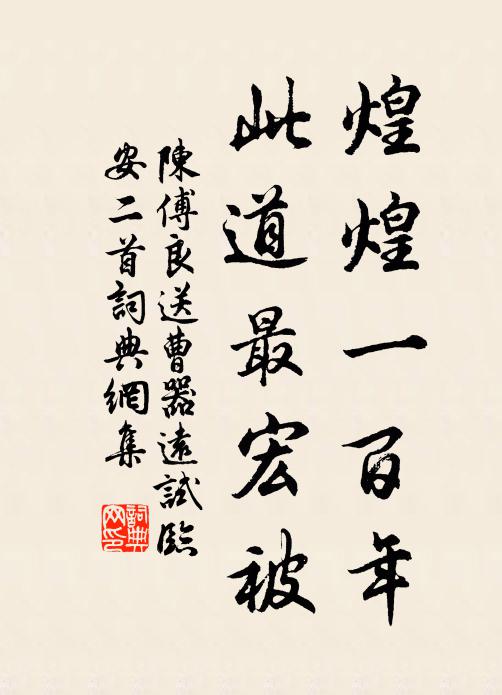 煌煌一百年
此道最宏被
陳傅良送曹器遠試臨
安二首詞典網集
詞典
网印